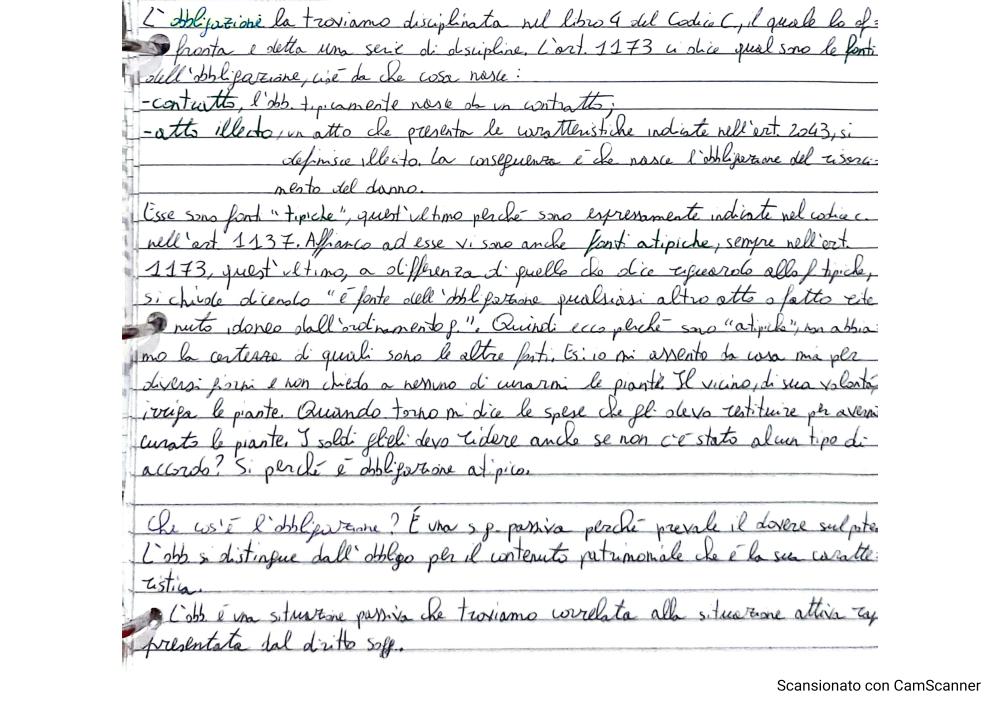 L'obbligazione la troviamo disciplinata nel libro 4 del Codice C, il quale lo af=
fronta e detta una serie di discipline. L'art. 1173 ci dice quali sono le fonti
dell'obbligazione, cioè da che cosa nasce:
-contratto, l'obb. tipicamente nasce da un contratto;
-atto illecito, un atto che presenta le caratteristiche indicate nell'art. 2043, si
definisce illecito. La conseguenza è che nasce l'obbligazione del risarci-
mento del danno.
Esse sono fonti "tipiche", quest'ultimo perché sono espressamente indicate nel codice c.
nell'art 1137. Affianco ad esse vi sono anche fonti atipiche, sempre nell'art.
1173, quest'ultimo, a differenza di quello che dice riguardo alle f tipiche,
si chiude dicendo "è fonte dell'obbligazione qualsiasi altro atto o fatto rite
nuto idoneo dall'ordinamento g.". Quindi ecco perché sono "atipiche", non abbia
mo la certezza di quali sono le altre fonti. Es: io mi assento da casa mia per
diversi giorni e non chiedo a nessuno di curarmi le piante. Il vicino, di sua volontà,
irriga le piante. Quando torno mi dice le spese che gli devo restituire per avermi
curato le piante. I soldi glieli devo ridare anche se non c'è stato alcun tipo di
accordo? Si perché è obbligazione atipica.
Che cos'è l'obbligazione? È una s.g. passiva perché prevale il dovere sul pote
L'obb. si distingue dall'obbligo per il contenuto patrimoniale che è la sua caratte
ristica.
L'obb. è una situazione passiva che troviamo correlata alla situazione attiva rap
presentata dal diritto sogg..
Scansionato con CamScanner